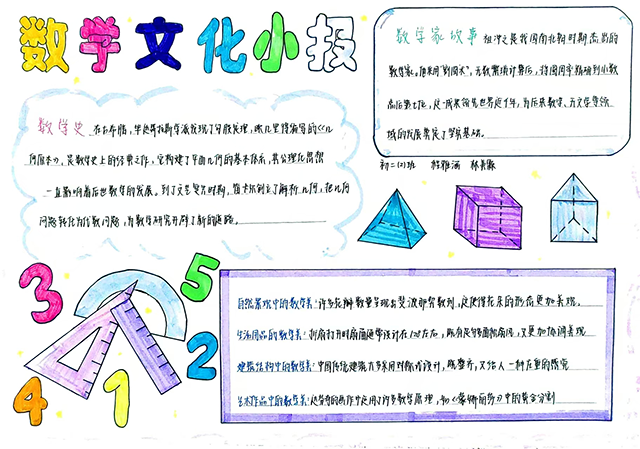 数学文化小报
数学家故事 祖冲之是我国南北朝时期杰出的
数学家。他采用"割圆术"，无数繁琐计算后，将圆周率精确到小数
点后第七位，这一成果领先世界近千年，为后来数学、天文学等领
域的发展奠定了坚实基础。
初二(2)班
数学史 在古希腊，毕达哥拉斯学派发现了勾股定理，欧几里得编写的《几
何原本》，是数学史上的经典之作，它构建了平面几何的基本体系，其公理化思想
一直影响着后世数学的发展。到了文艺复兴时期，笛卡尔创立了解析几何，把几何
问题转化为代数问题，为数学研究开辟了新的道路。
3
5
2
4
1
自然景观中的数学美：许多花瓣数量呈现出斐波那契数列，这使得花朵的形态更加美观。
生活用品的数学美：折扇打开时扇面通常设计在120左右，既有足够面积扇风，又更加协调美观
建筑结构中的数学美：中国传统建筑大多采用对称式设计，既整齐，又给人一种庄重的感觉
艺术作品中的数学美：达芬奇的画作中运用了许多数学原理，如《蒙娜丽莎》中的黄金分割